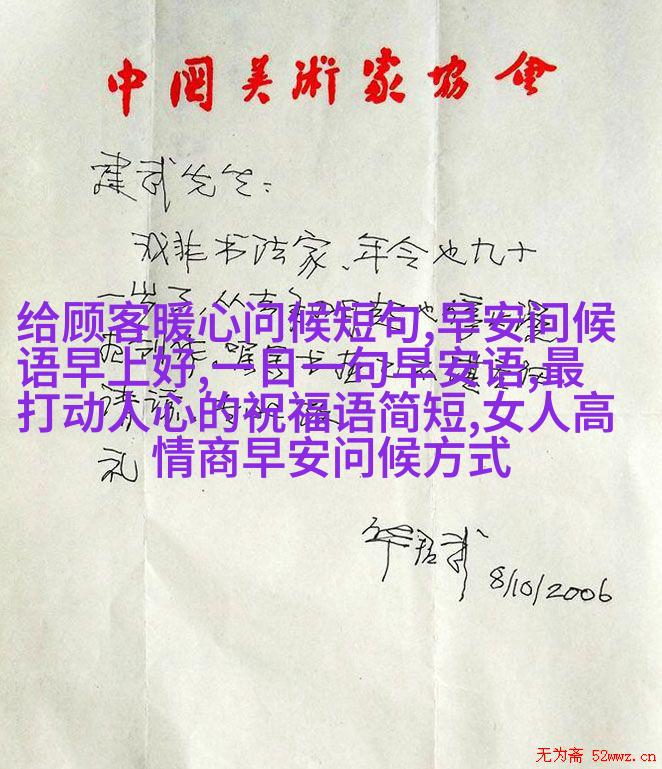 中国美術家协会
建武先生：
我非书法家、年令也九十
一岁了,从
给顾客暖心问候短句,早安问候
语早上好,一日一句早安语,最
打动人心的祝福语简短,女人高
情商早安问候方式
请谅
礼
华君武
8/10/2006
无为斋 52wwz.cn